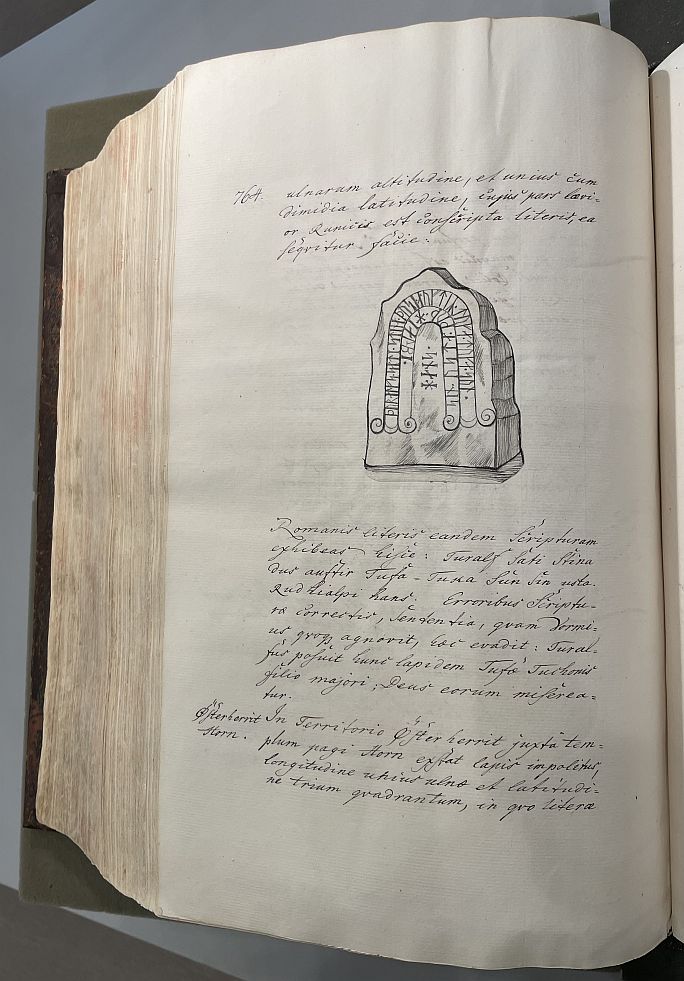 764.
ulnarum altitudine, et unius cum
dimidia latitudine, cujus pars lævi-
or Runicis est conscripta literis, ea
seqvitur facie:
Romanis literis eandem Scripturam
exhibeas hisce: Turalf Sati Stina
dus auftir Tufa - Tuka Sun Sin usta.
Rud hialpi hans. Erroribus Scriptu-
ræ correctis, Sententia, qvam Vormi-
us qvoqz agnovit, hæc evadit: Tural-
fus posuit hunc lapidem Tufæ Tuchonis
filio majori; Deus eorum miserea-
tur.
Østerherrit
Horn.
In Territorio Østerherrit juxta tem-
plum pagi Horn exstat lapis impolitus,
longitudine unius ulnæ et latitudi-
ne trium qvadrantum, in qvo literæ